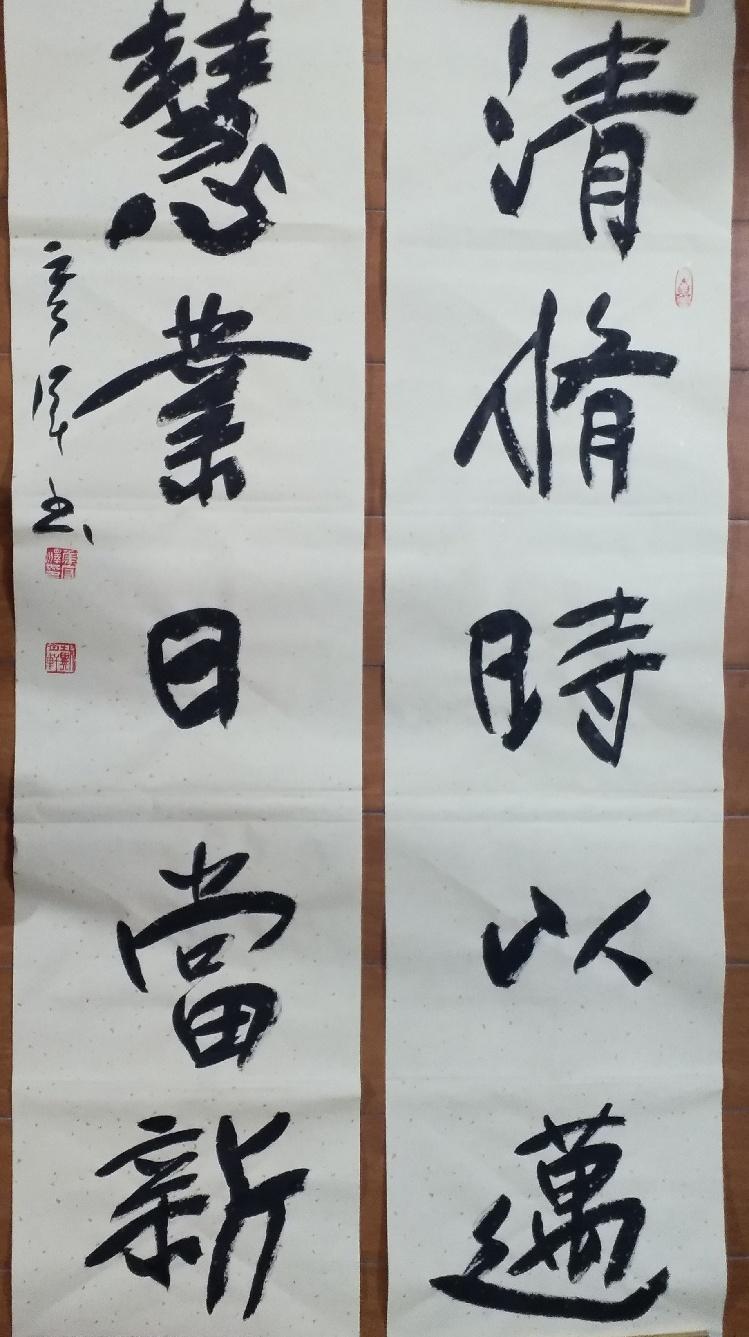 清脩時以邁
慧業日當新